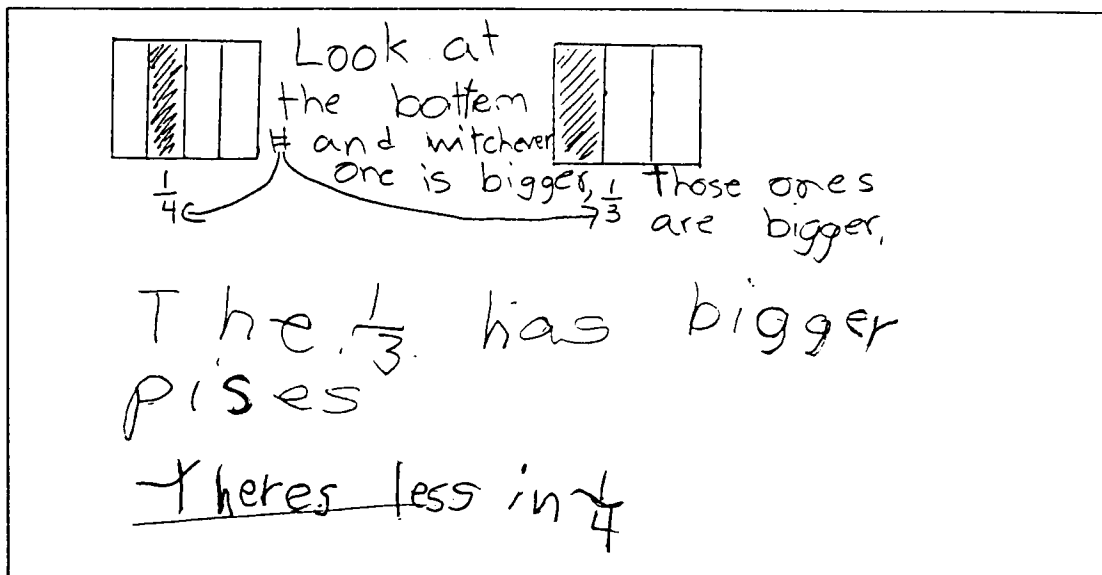 Look at
the bottem
# and witchever
one is bigger, those ones
are bigger.
1/4
1/3
The 1/3 has bigger
pises
Theres less in 1/4